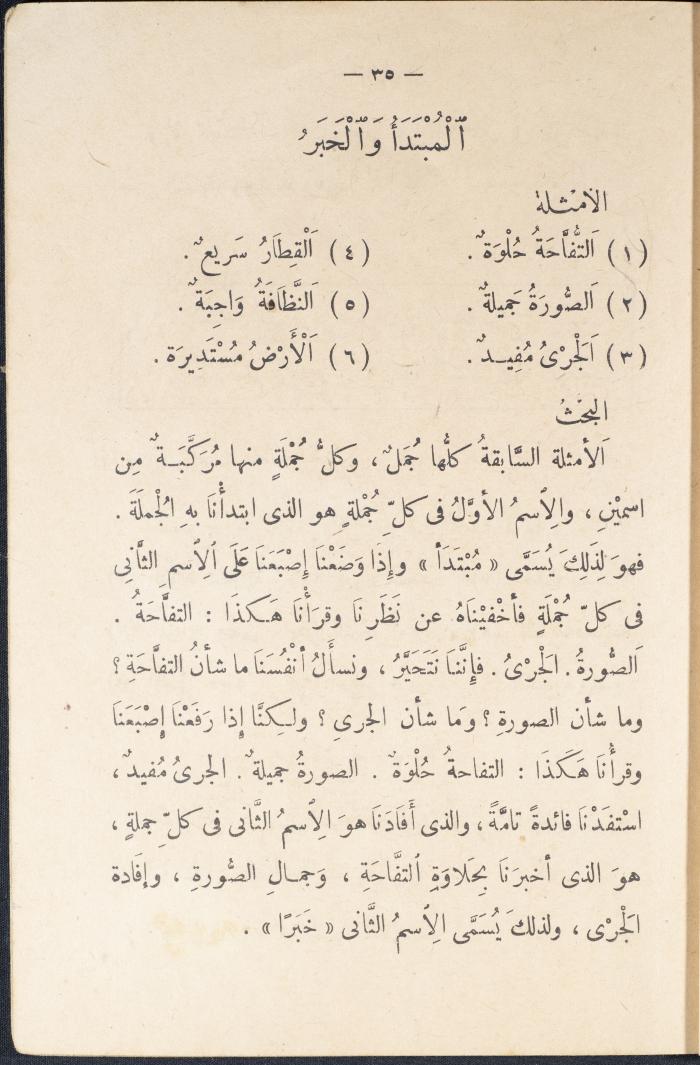 — ٣٥ —
اَلْمُبْتَدَأُ وَاَلْخَبَرُ
الأمْثلة
(١) اَلتُّفَّاحَةُ حُلْوَةٌ . (٤) اَلْقِطَارُ سَرِيعٌ .
(٢) اَلصُّورَةُ جَمِيلةٌ . (٥) اَلنَّظَافَةُ وَاجِبَةٌ .
(٣) اَلْجَرْىُ مُفِيـدٌ . (٦) اَلْأَرْضُ مُسْتَدِيرَة .
البحْثُ
اَلأمثلة السَّابقةُ كلُّها جُمَلٌ ، وكلُّ جُمْلَةٍ منها مُرَكَّبَـةٌ مِن
اسميْنِ ، والِاسمُ الأوَّلُ فى كلِّ جُمْلةٍ هو الذى ابتدأْنَا بهِ الْجُملَةَ .
فهوَ لِذَلِكَ يُسَمَّى « مُبْتَدَأ » وإِذَا وَضَعْنَا إِصْبَعَنَا عَلَى اَلِاسمِ الثَّانِى
فى كلِّ جُمْلَةٍ فأخْفيْنَاهُ عن نَظَرِنَا وقرَأْنَا هَـكذَا : التفَّاحَةُ .
اَلصُّورةُ . الْجَرْىُ . فإِنَّنا نَتَحَيَّرُ ، ونسأَلُ أنْفُسَنَا ما شأنُ التفاَّحَةِ ؟
وما شأن الصورةِ ؟ وَما شأن الجرىِ ؟ ولـكِنَّا إِذا رَفَعْنَا إِصْبَعَنَا
وقرأْنَا هَكَذَا : التفاحةُ حُلْوَةٌ . الصورةُ جميلةٌ . الجرىُ مُفيدٌ ،
اسْتفَدْنَا فائدةً تامَّةً ، والذى أَفَادَنَا هوَ الِاسمُ الثَّانى فى كلِّ جملةٍ ،
هوَ الذى أخبرَنَا بِحَلاوَةِ اَلتفَّاحَةِ ، وَجمـالِ الصُّورةِ ، وإفَادة
الْجَرْىِ ، ولذلكَ يُسَمَّى الِاسمُ الثَّانى « خَبَرًا » .